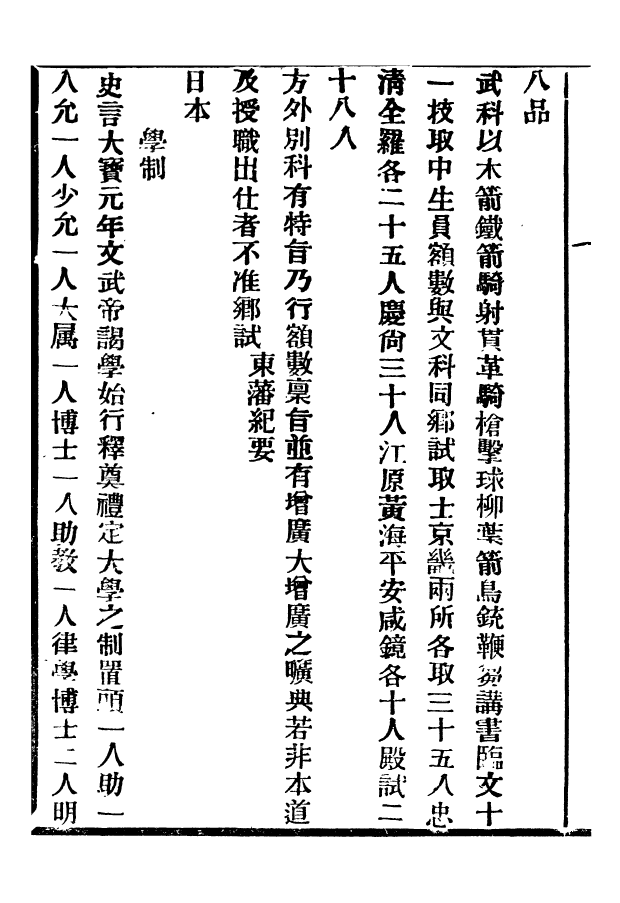 八品
武科以木箭鐵箭騎射貫革騎槍擊球柳葉箭鳥銃鞭芻講書臨文十
一技取中生員額數與文科同鄉試取士京畿兩所各取三十五人忠
清全羅各二十五人慶尙三十人江原黃海平安咸鏡各十人殿試二
十八人
方外別科有特旨乃行額數稟旨並有增廣大增廣之曠典若非本道
及授職出仕者不准鄉試東藩紀要
日本
學制
史言大寶元年文武帝謁學始行釋奠禮定大學之制置頭一人助一
人允一人少允一人大属一人博士一人助教一人律學博士二人明